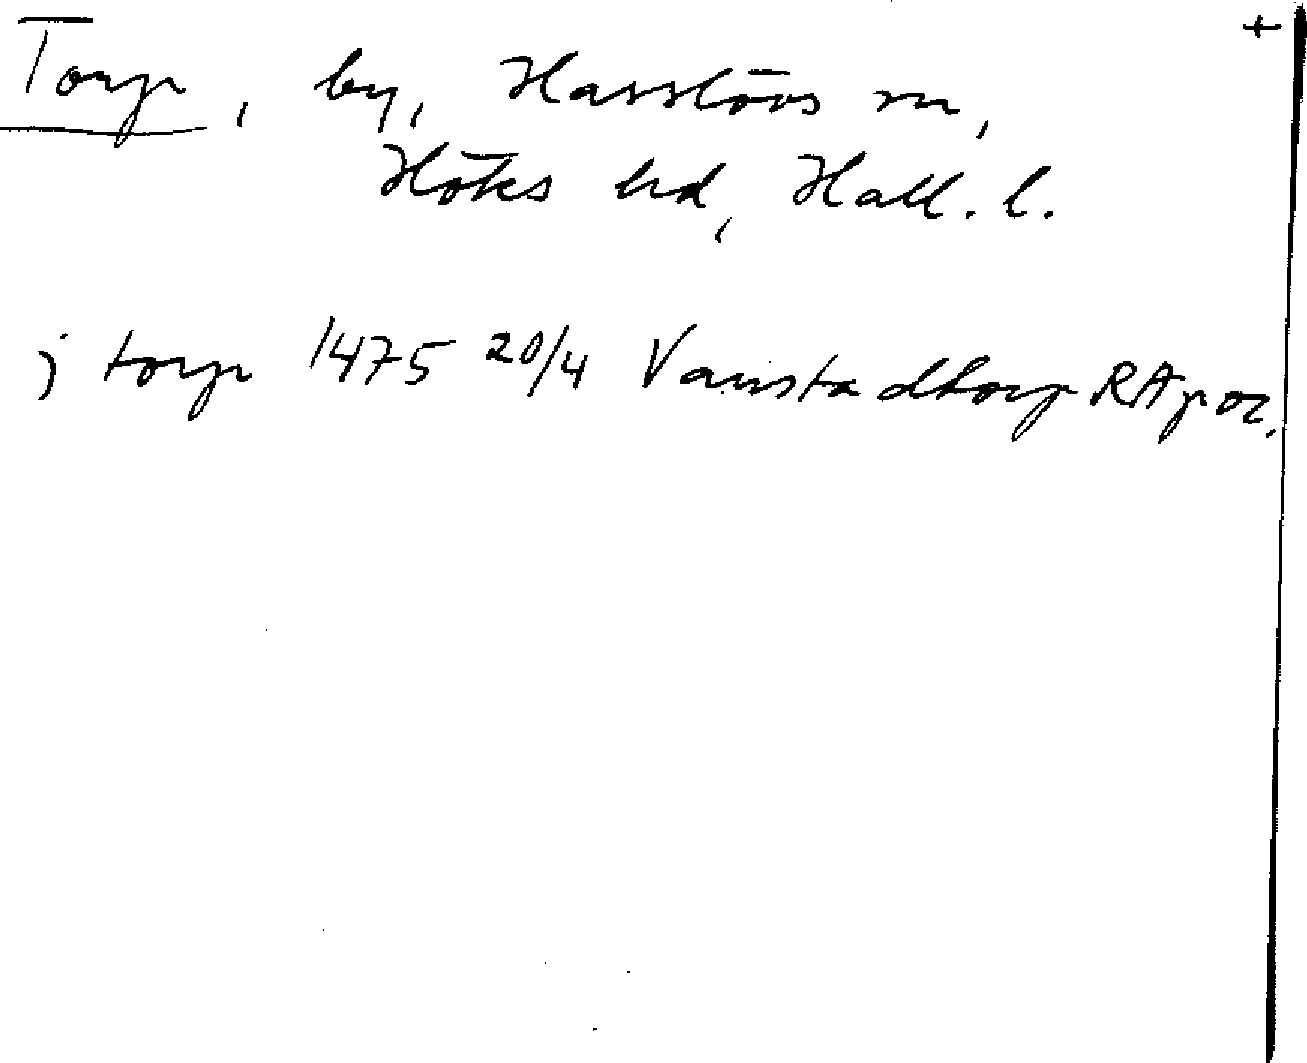 +
Torp, by, Hasslövs sn,
Höks hd, Hall. l.
j torp 1475 20/4 Vanstadtorp RApor.